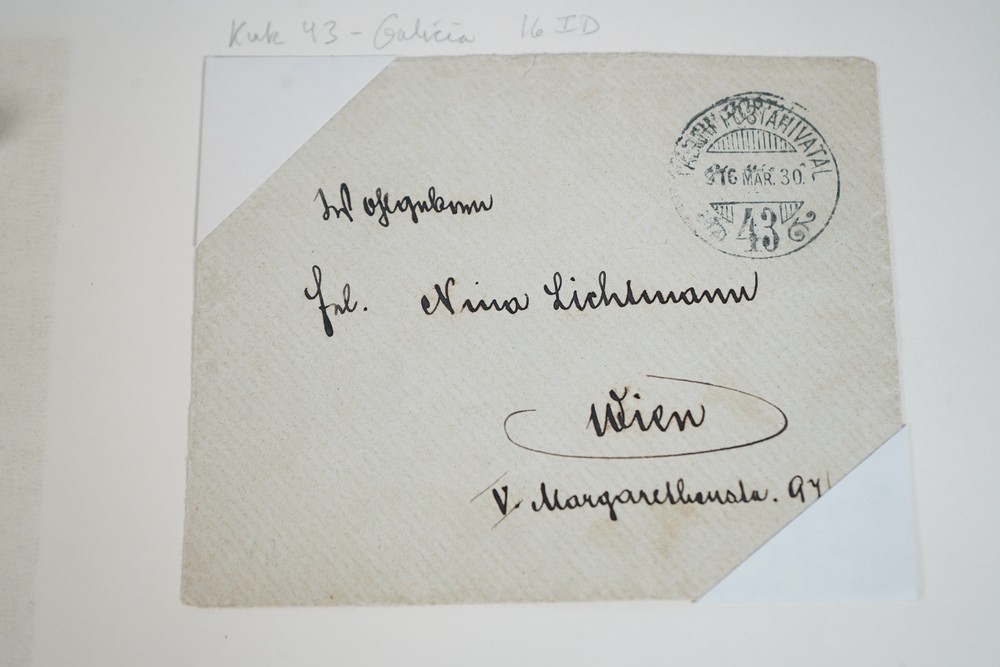 Kuk 43 - Galicia 16 ID
TÁBORI POSTAHIVATAL
916 MÁR. 30.
43
Wohlgeboren
Frl. Nina Lichtmann
Wien
V. Margarethenstr. 97